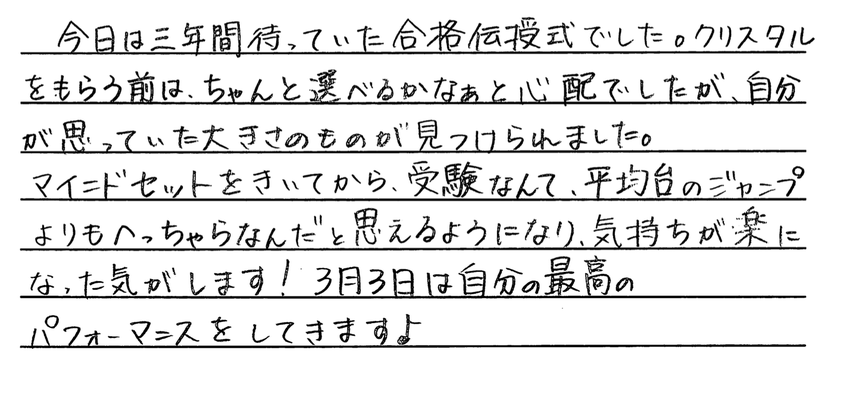 今日は三年間待っていた合格伝授式でした。クリスタル
をもらう前は、ちゃんと選べるかなぁと心配でしたが、自分
が思っていた大きさのものが見つけられました。
マインドセットをきいてから、受験なんて、平均台のジャンプ
よりもへっちゃらなんだと思えるようになり、気持ちが楽に
なった気がします！3月3日は自分の最高の
パフォーマンスをしてきます♪